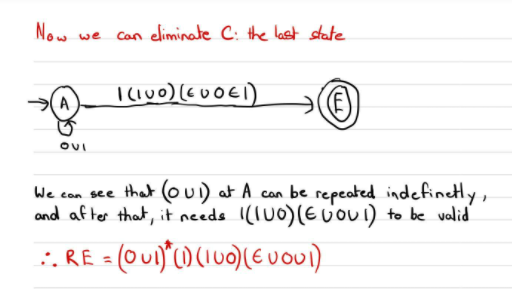 Now we can eliminate C: the last state
1(1∪0)(ϵ∪0ϵ1)
A
E
0∪1
We can see that (0∪1) at A can be repeated indefinetly,
and after that, it needs 1(1∪0)(ϵ∪0∪1) to be valid
∴ RE = (0∪1)*(1)(1∪0)(ϵ∪0∪1)